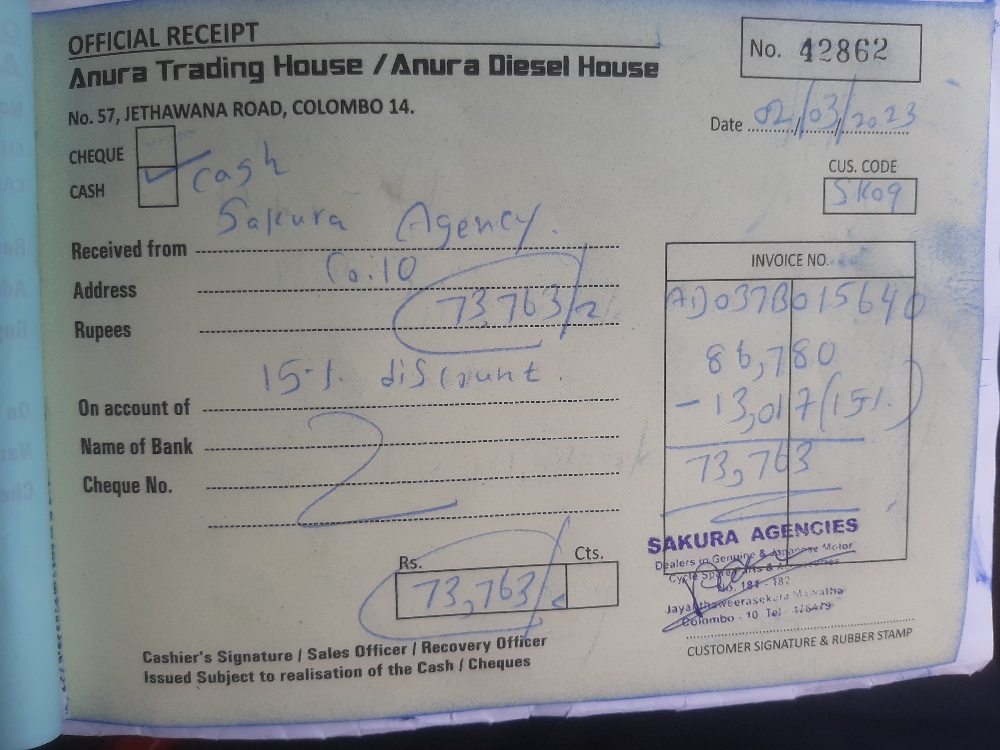 OFFICIAL RECEIPT
Anura Trading House / Anura Diesel House
No. 57, JETHAWANA ROAD, COLOMBO 14.
No. 42862
Date 02/03/2023
CHEQUE
CASH
cash
CUS. CODE
SK09
Received from Sakura Agency.
Address Co.10
Rupees 73,763/=
15% discount.
On account of
Name of Bank
Cheque No.
INVOICE NO.
AD037B015640
86,780
- 13,017 (15%)
73,763
Rs. Cts.
73,763/=
SAKURA AGENCIES
Dealers in Genuine & Japanese Motor
Cycle Spare Parts & Accessories
No. 181 - 182
Jayanthaweerasekara Mawatha
Colombo - 10 Tel
CUSTOMER SIGNATURE & RUBBER STAMP
Cashier's Signature / Sales Officer / Recovery Officer
Issued Subject to realisation of the Cash / Cheques